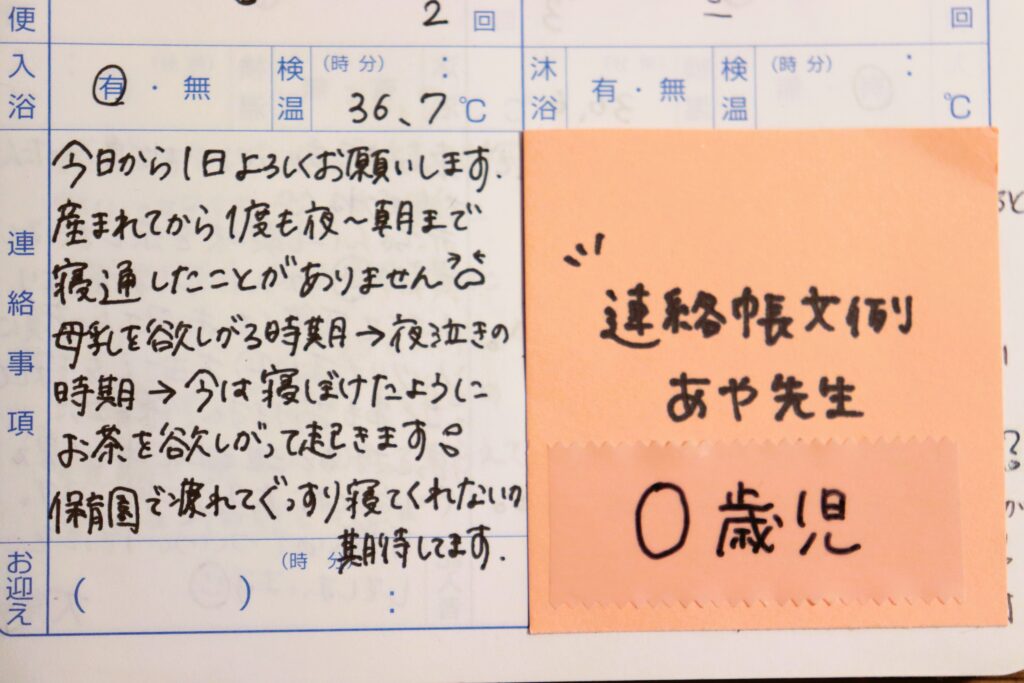 便 2 回 回
入浴 有・無 検温 (時 分) : 36、7℃ 沐浴 有・無 検温 (時 分) : ℃
連絡事項
今日から1日よろしくお願いします.
産まれてから1度も夜〜朝まで
寝通したことがありません
母乳を欲しがる時期→夜泣きの
時期→今は寝ぼけたように
お茶を欲しがって起きます
保育園で疲れてぐっすり寝てくれないか
期待してます.
お迎え (時 分)
( ) :
連絡帳文例
あや先生
0歳児